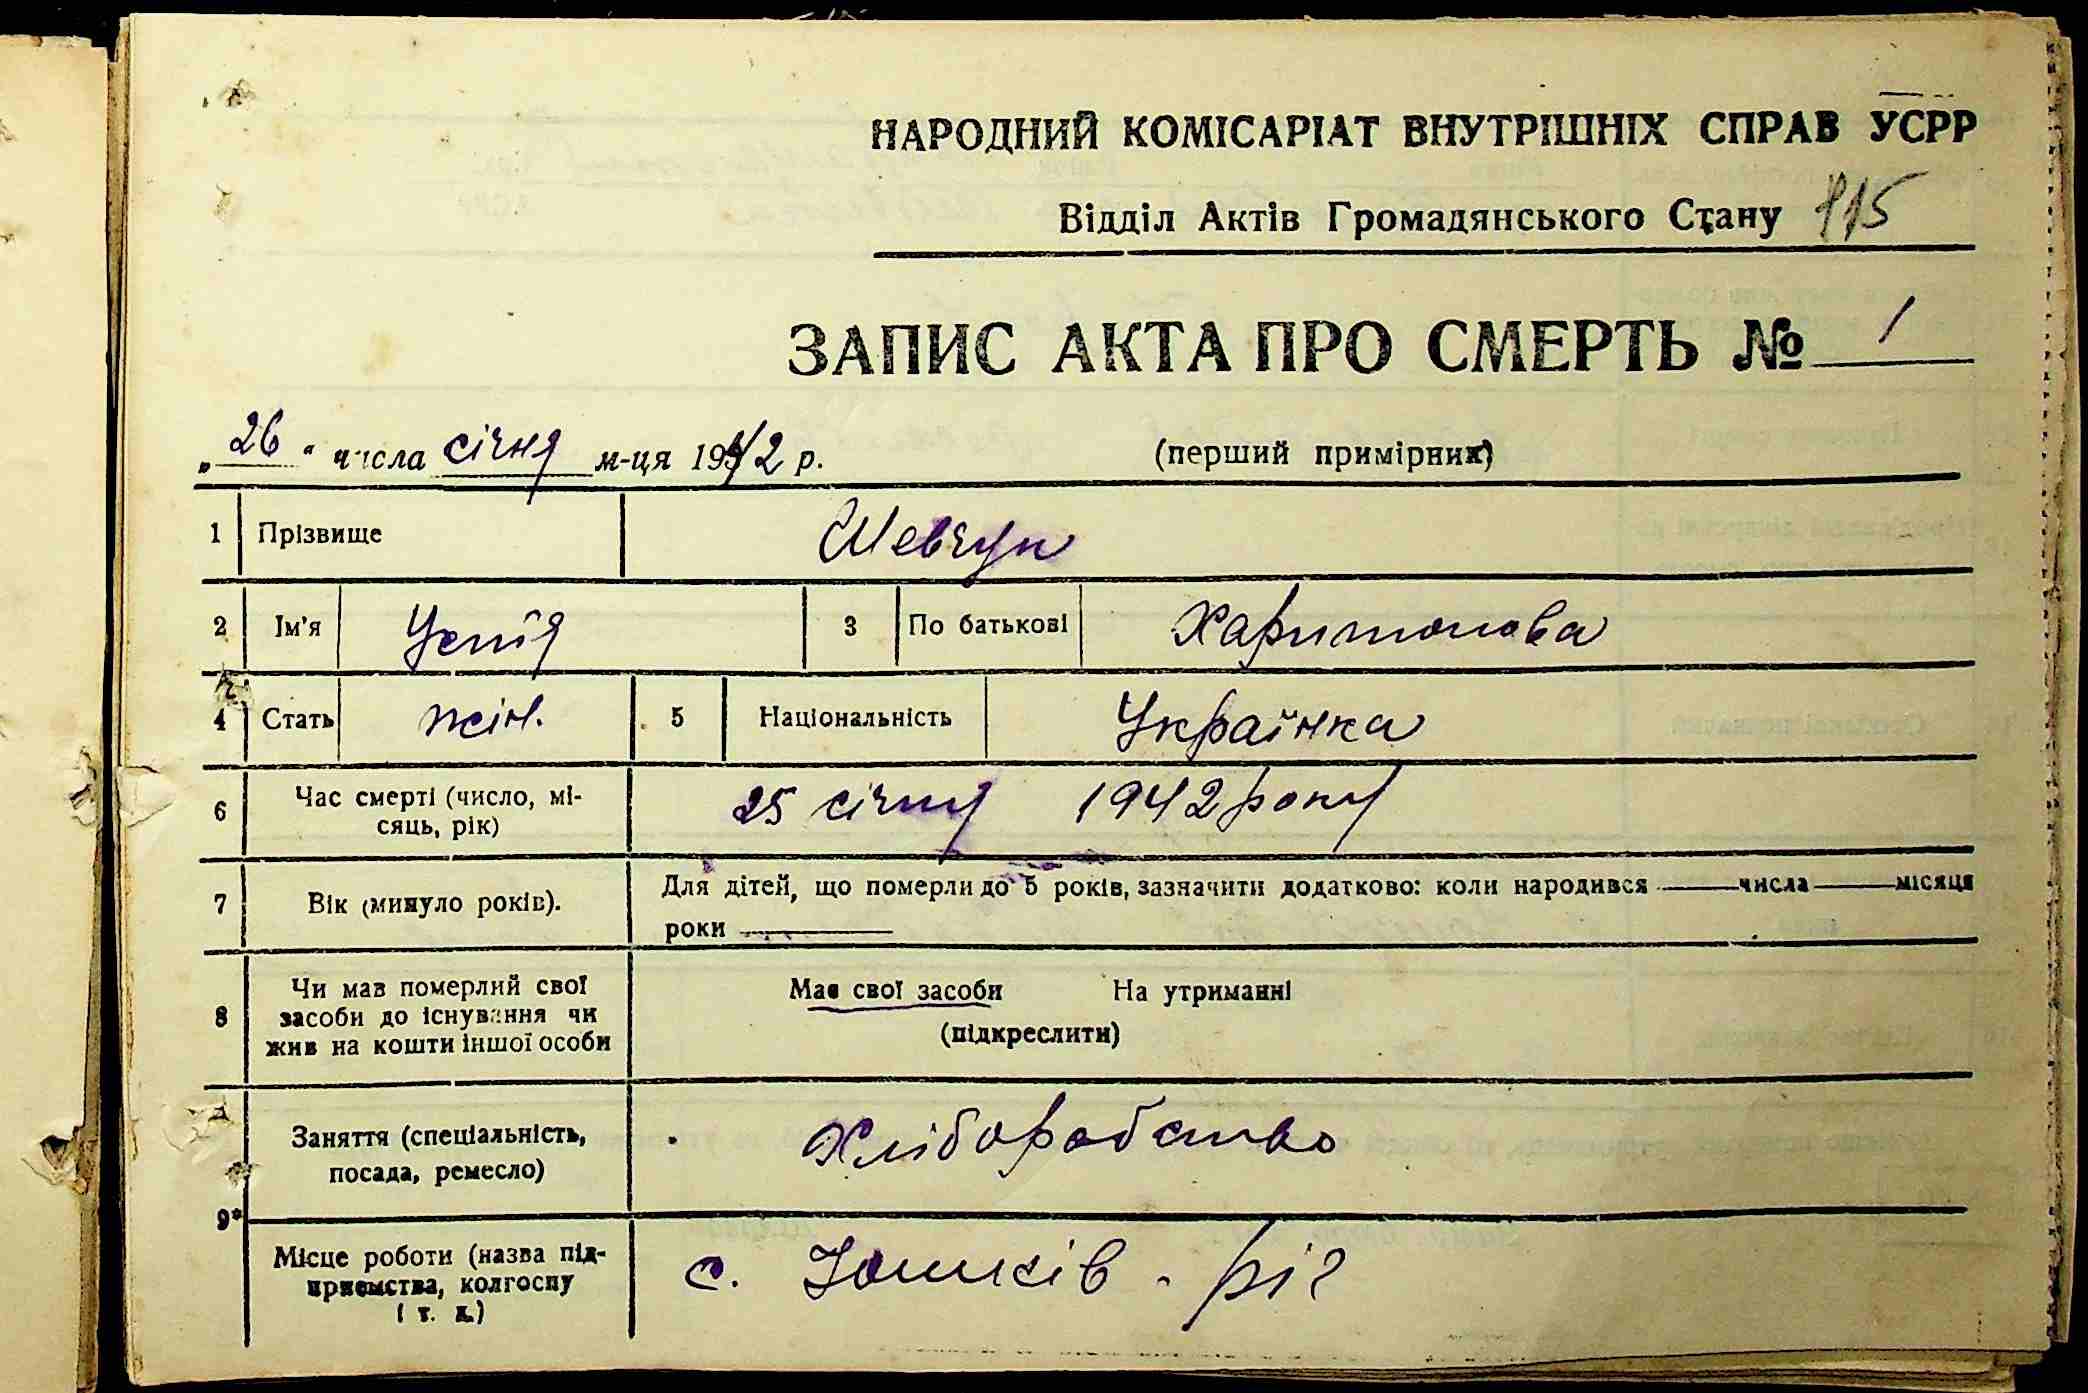 НАРОДНИЙ КОМІСАРІАТ ВНУТРІШНІХ СПРАВ УСРР
Відділ Актів Громадянського Стану 115
ЗАПИС АКТА ПРО СМЕРТЬ № 1
„26" числа січня м-ця 1942 р. (перший примірник)
1 Прізвище Шевчук
2 Ім'я Устія 3 По батькові Харитонова
4 Стать жін. 5 Національність Українка
6 Час смерті (число, мі-
сяць, рік) 25 січня 1942 року
7 Вік (минуло років). Для дітей, що померли до 5 років, зазначити додатково: коли народився числа місяця
роки
8 Чи мав померлий свої
засоби до існування чи
жив на кошти іншої особи Має свої засоби На утриманні
(підкреслити)
9* Заняття (спеціальність,
посада, ремесло) Хліборобство
Місце роботи (назва під-
приємства, колгоспу
і т. д.) с. - ріг